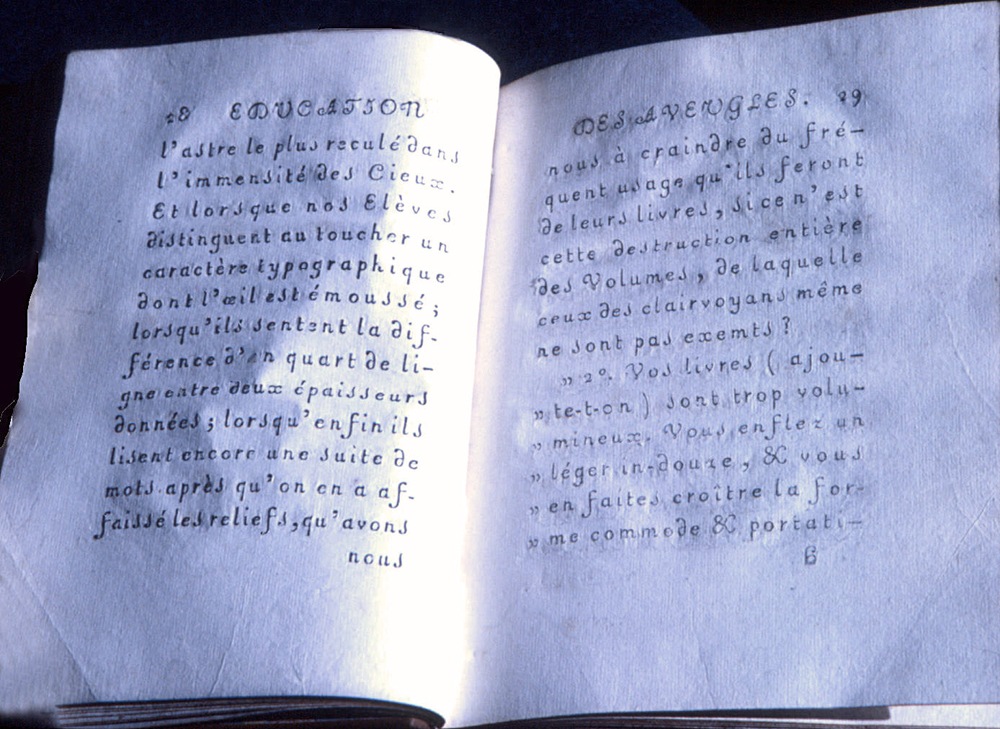 28 EDUCATION
l'astre le plus reculé dans
l'immensité des Cieux.
Et lorsque nos Elèves
distinguent au toucher un
caractère typographique
dont l'œil est émoussé;
lorsqu'ils sentent la dif-
férence d'un quart de li-
gne entre deux épaisseurs
données; lorsqu'enfin ils
lisent encore une suite de
mots après qu'on en a af-
faissé les reliefs, qu'avons
nous
DES AVEUGLES. 29
nous à craindre du fré-
quent usage qu'ils feront
de leurs livres, si ce n'est
cette destruction entière
des Volumes, de laquelle
ceux des clairvoyans même
ne sont pas exemts?
» 2°. Vos livres ( ajou-
» te-t-on ) sont trop volu-
» mineux. Vous enflez un
» léger in-douze, & vous
» en faites croître la for-
» me commode & portati-
B